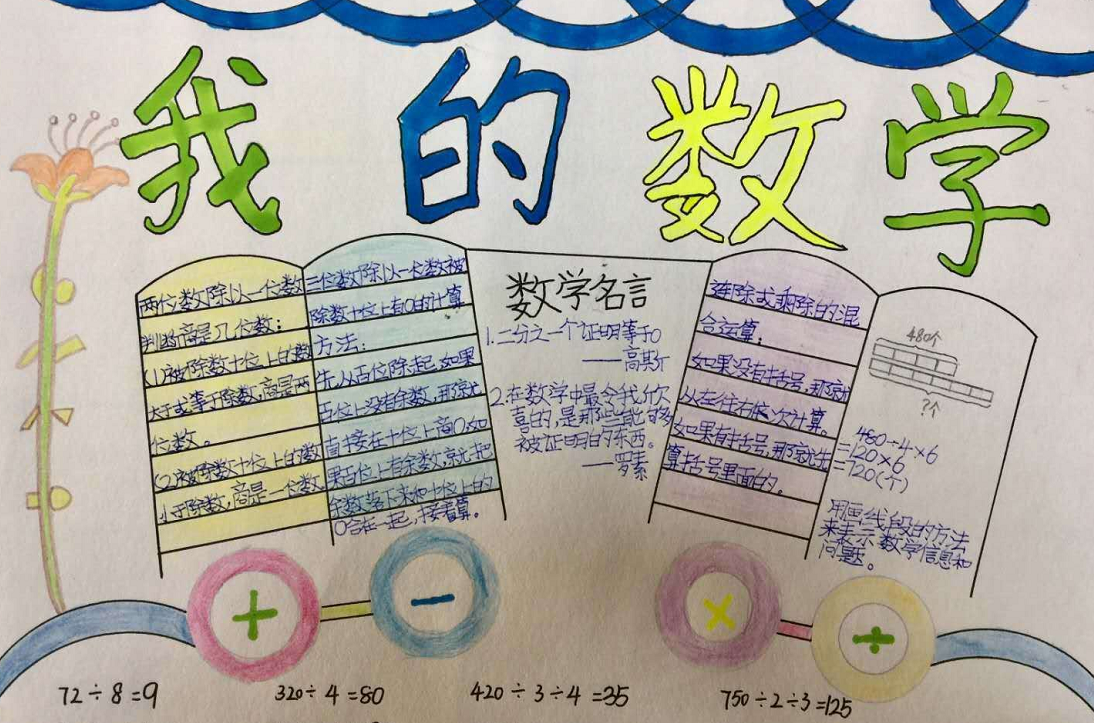 我的数学
两位数除以一位数
判断商是几位数：
(1)被除数十位上的数
大于或等于除数，商是两
位数。
(2)被除数十位上的数
小于除数，商是一位数
三位数除以一位数被
除数十位上有0的计算
方法：
先从百位除起，如果
百位上没有余数，那就
直接在十位上商0，如
果百位上有余数，就把
余数落下来和十位上的
0合在一起，接着算。
数学名言
1.二分之一个证明等于0
——高斯
2.在数学中最令我欣
喜的，是那些能够
被证明的东西。
——罗素
连除或乘除的混
合运算：
如果没有括号，那就
从左往右依次计算。
如果有括号，那就先
算括号里面的。
480个
?个
480÷4×6
=120×6
=720(个)
用画线段的方法
来表示数学信息和
问题。
+
-
×
÷
72÷8=9
320÷4=80
420÷3÷4=35
750÷2÷3=125